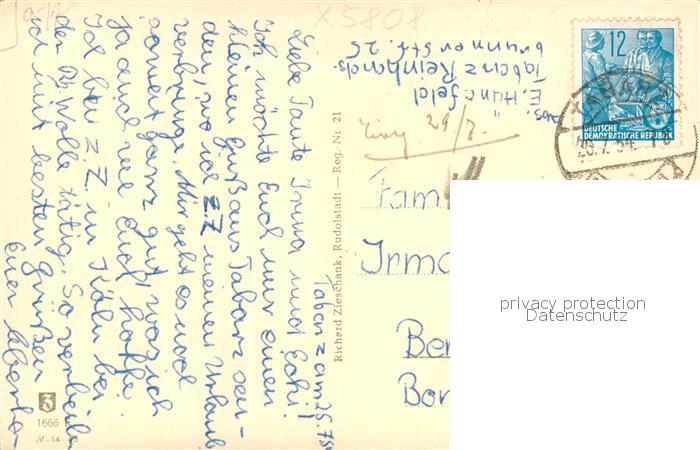 X5808
Tabarz am 25.7.54
Liebe Tante Irma und Echi!
Ich möchte Euch nur einen
kleinen Gruß aus Tabarz sen-
den, wo ich z.Z. meinen Urlaub
verbringe. Mir geht es noch
soweit ganz gut, was ich
ja auch von Euch hoffe.
Ich bei z.Z. in Köln bei
der Wolle tätig. So verbleibe
ich mit besten Grüßen
Euer
Abs.
E. Hünefeld
Tabarz Reinhards-
brunner Str. 26
29/7.
12
DEUTSCHE
DEMOKRATISCHE REPUBLIK
TABARZ
26.7.54
Fam
Irma
Ber
Bor
Richard Zieschank, Rudolstadt — Reg.-Nr. 21
1666
IV-14
privacy protection
Datenschutz